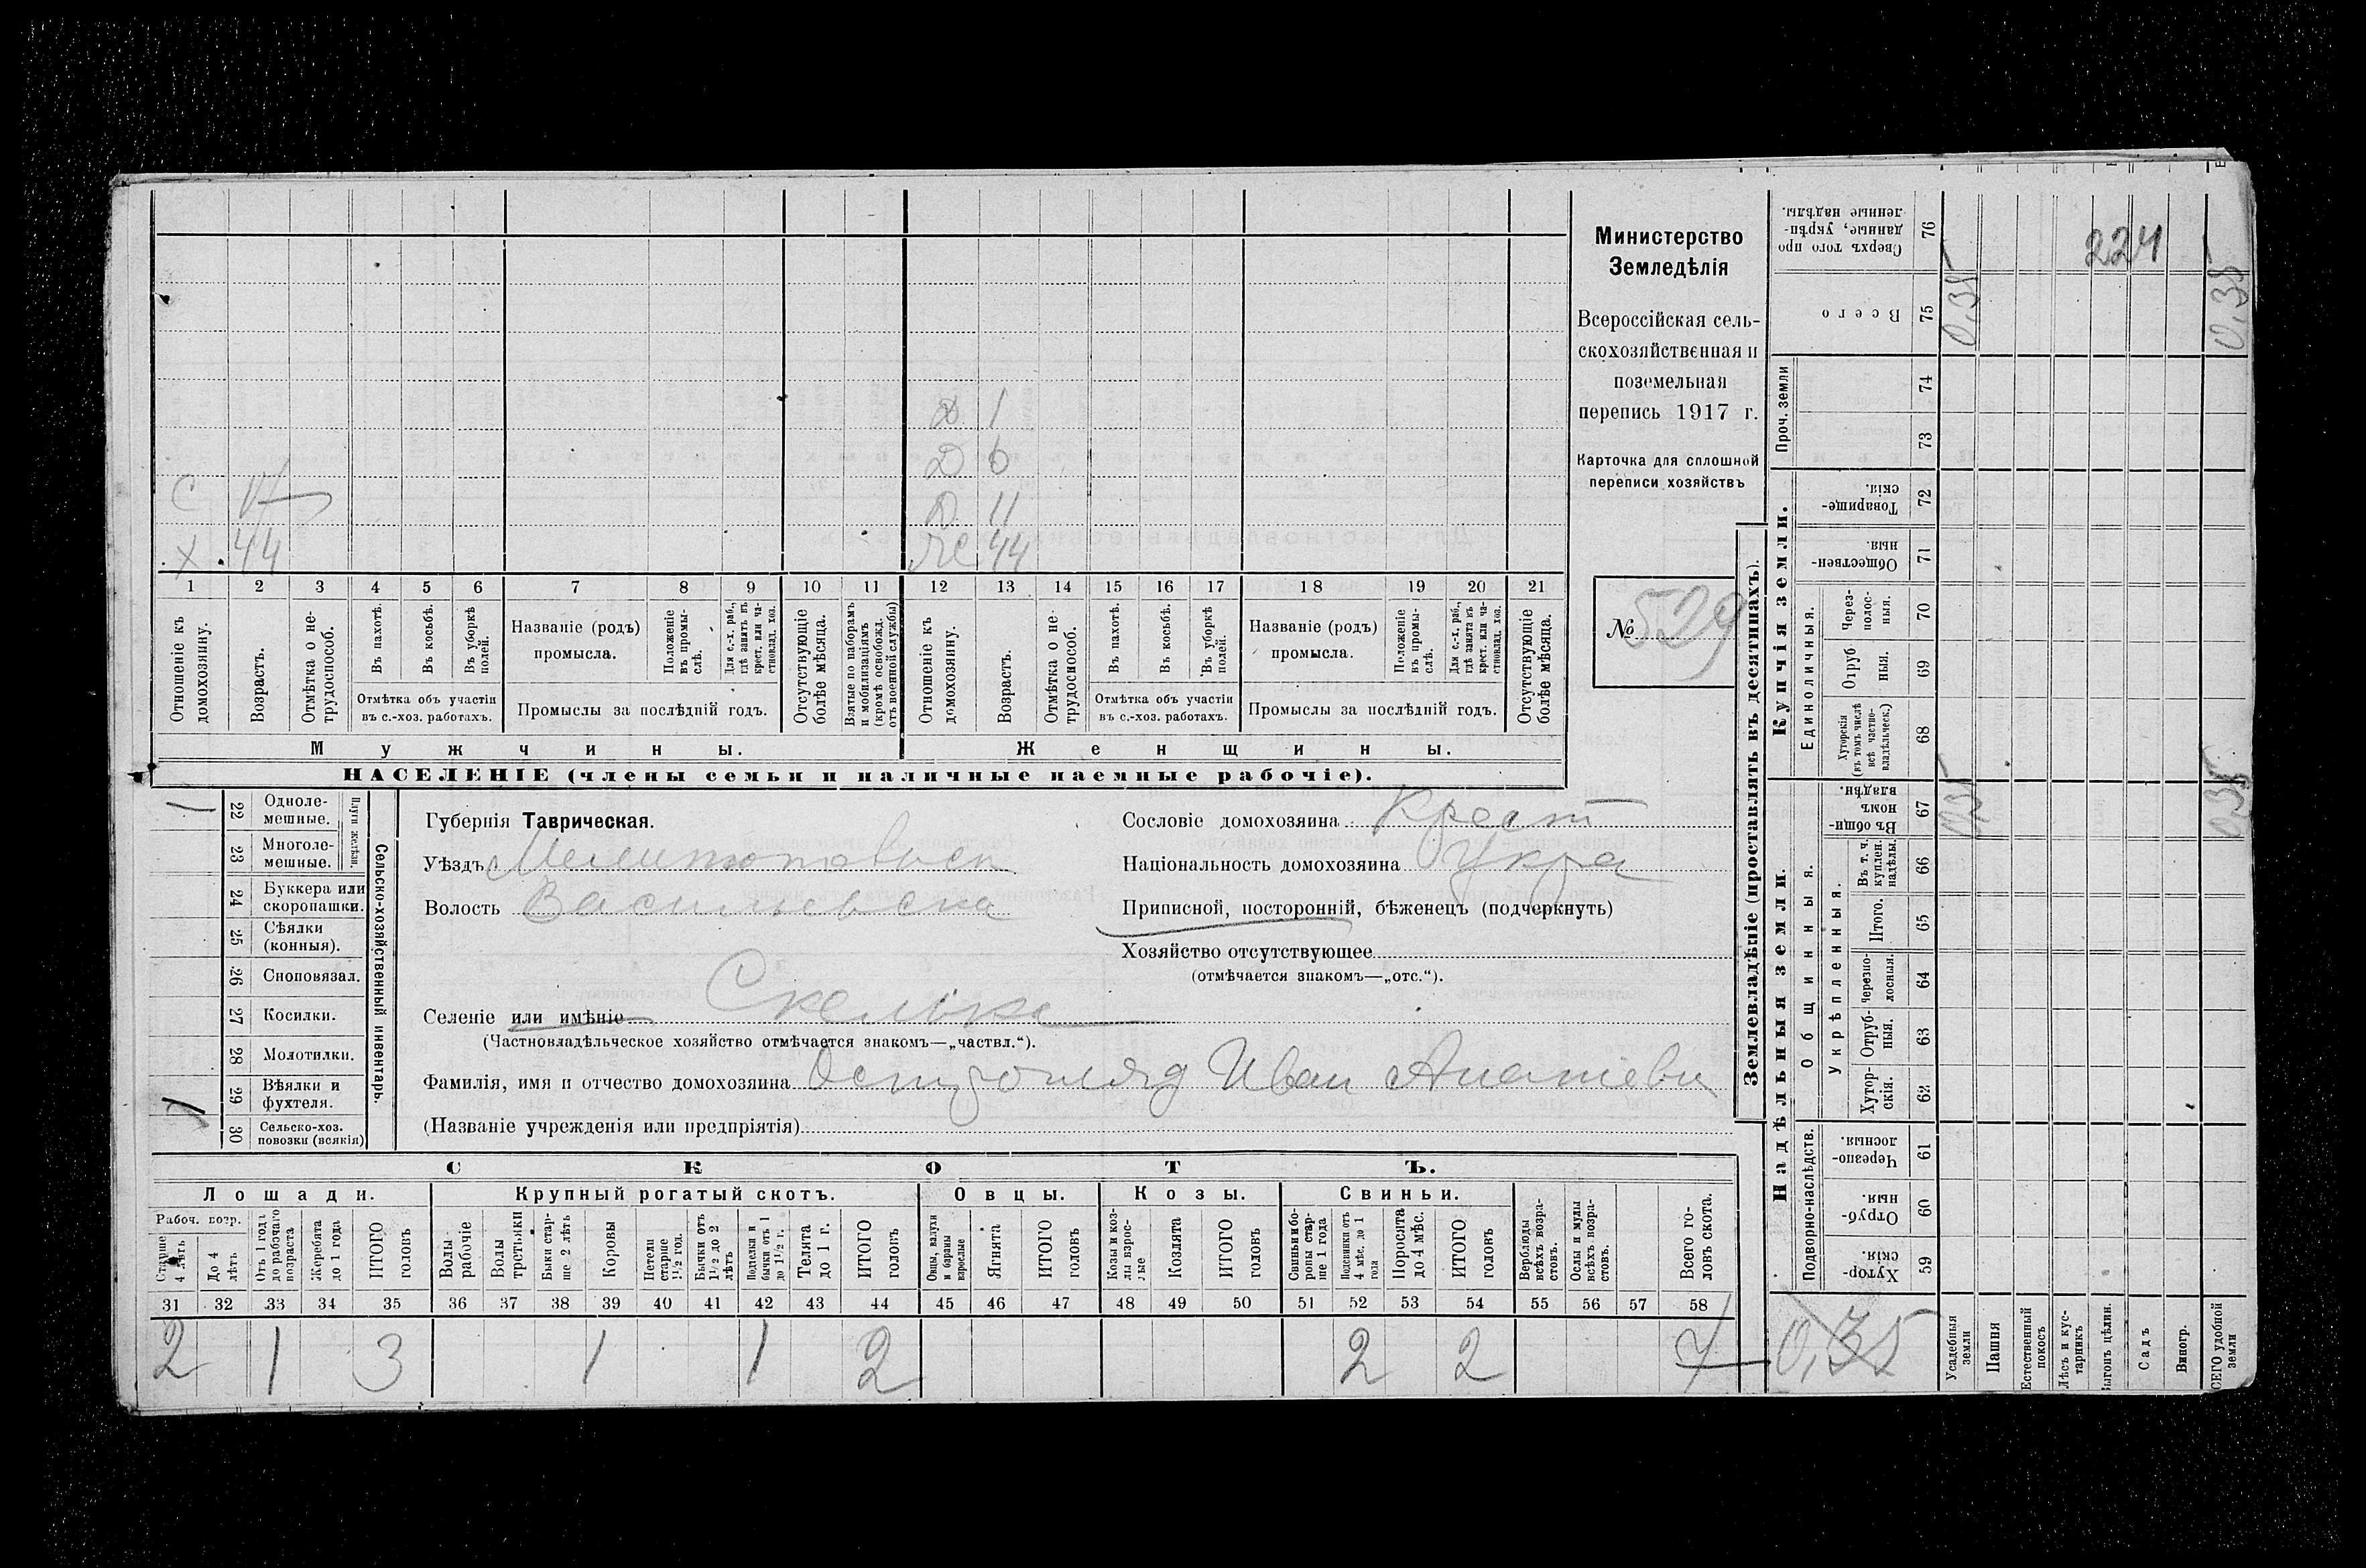 224
Министерство
Земледѣлія
Всероссійская сель-
скохозяйственная и
поземельная
перепись 1917 г.
Карточка для сплошной
переписи хозяйствъ
№ 529
Д 1
Д 6
Д 11
С
Х 44 Же 44
1 2 3 4 5 6 7 8 9 10 11 12 13 14 15 16 17 18 19 20 21
Отношеніе къ домохозяину.
Возрастъ.
Отмѣтка о не-трудоспособ.
Въ пахотѣ.
Въ косьбѣ.
Въ уборкѣ полей.
Отмѣтка объ участіи
въ с.-хоз. работахъ.
Названіе (родъ)
промысла.
Положеніе въ промы-слѣ.
Для с.-х. раб., гдѣ занятъ въ крест. или ча-стновлад. хоз.
Промыслы за послѣдній годъ.
Отсутствующіе болѣе мѣсяца.
Взятые по наборамъ и мобилизаціямъ (кромѣ освобожд. отъ военной службы)
Отношеніе къ домохозяину.
Возрастъ.
Отмѣтка о не-трудоспособ.
Въ пахотѣ.
Въ косьбѣ.
Въ уборкѣ полей.
Отмѣтка объ участіи
въ с.-хоз. работахъ.
Названіе (родъ)
промысла.
Положеніе въ промы-слѣ.
Для с.-х. раб., гдѣ занята въ крест. или ча-стновлад. хоз.
Промыслы за послѣдній годъ.
Отсутствующіе болѣе мѣсяца.
Мужчины. Женщины.
НАСЕЛЕНІЕ (члены семьи и наличные наемные рабочіе).
22 Одноле-мешные.
23 Многоле-мешные.
24 Буккера или скоропашки.
25 Сѣялки (конныя).
26 Сноповязал.
27 Косилки.
28 Молотилки.
29 Вѣялки и фухтеля.
30 Сельско-хоз. повозки (всякія)
Сельско-хозяйственный инвентарь.
Губернія Таврическая.
Уѣздъ Мелитопольск
Волость Васильевска
Селеніе или имѣніе Скельки
(Частновладѣльческое хозяйство отмѣчается знакомъ—„частвл.“).
Фамилія, имя и отчество домохозяина Иван Ананіеви
(Названіе учрежденія или предпріятія)
Сословіе домохозяина Крест
Національность домохозяина Укра
Приписной, посторонній, бѣженецъ (подчеркнуть)
Хозяйство отсутствующее
(отмѣчается знакомъ—„отс.“).
СКОТЪ.
Лошади. Крупный рогатый скотъ. Овцы. Козы. Свиньи.
Рабоч. возр.
Старше 4 лѣтъ
До 4 лѣтъ
Отъ 1 года до рабочаго возраста
Жеребята до 1 года
ИТОГО головъ
Волы рабочіе
Волы третьяки
Быки стар-ше 2 лѣтъ
Коровы
Нетели старше 1½ год.
Бычки отъ 1½ до 2 лѣтъ
Подтелки и бычки отъ 1 до 1½ г.
Телята до 1 г.
ИТОГО головъ
Овцы, валухи и бараны взрослые
Ягнята
ИТОГО головъ
Козы и коз-лы взрос-лые
Козлята
ИТОГО головъ
Свиньи и бо-ровы стар-ше 1 года
Подсвинки отъ 4 мѣс. до 1 года
Поросята до 4 мѣс.
ИТОГО головъ
Верблюды всѣхъ возра-стовъ.
Ослы и мулы всѣхъ возра-стовъ.
Всего го-ловъ скота.
31 32 33 34 35 36 37 38 39 40 41 42 43 44 45 46 47 48 49 50 51 52 53 54 55 56 57 58
2 1 3 1 1 2 2 2 7
0,35
Землевладѣніе (проставлять въ десятинахъ).
Надѣльныя земли. Купчія земли. Проч. земли
Подворно-наслѣдств.
Общинныя.
Укрѣпленныя.
Единоличныя.
Хутор-скія. 59
Отруб-ныя. 60
Черезпо-лосныя. 61
Хутор-скія. 62
Отруб-ныя. 63
Черезпо-лосныя. 64
Итого. 65
Въ т. ч. куплен. надѣлы. 66
Въ общин-номъ владѣн. 67
Хуторскія (въ томъ числѣ всѣ частно-владѣльческ.) 68
Отруб-ныя. 69
Через-полос-ныя. 70
Обществен-ныя. 71
Товарище-скія. 72
73
74
Всего 75
Сверхъ того про-данные, укрѣп-ленные надѣлы. 76
Усадебныя земли 0,35 0,35
Пашня
Естественный покосъ
Лѣсъ и кус-тарникъ
Выгонъ цѣлин.
Садъ
Виногр.
ВСЕГО удобной земли 0,35 0,35